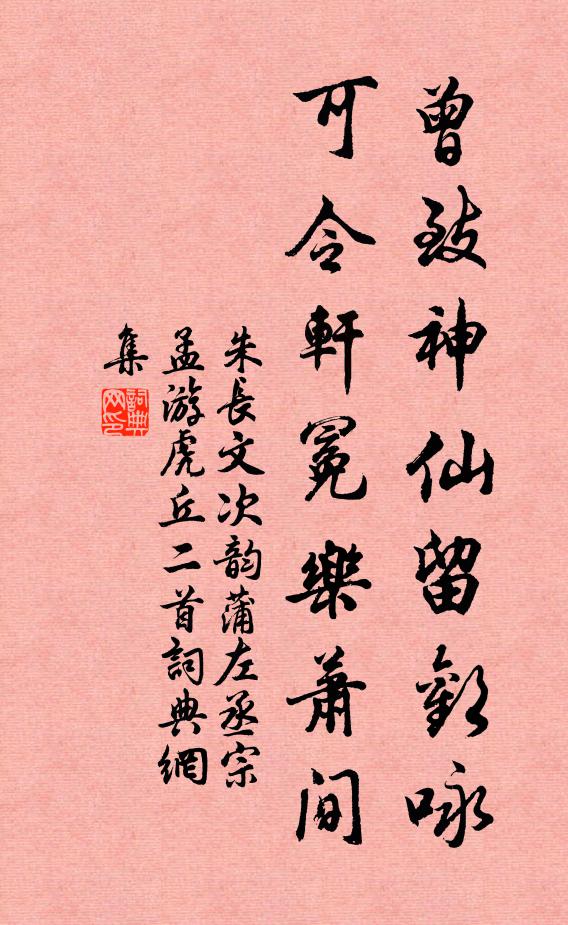 曾致神仙留歎咏
可令軒冕樂蕭間
朱長文次韵蒲左丞宗
孟游虎丘二首詞典網
集
詞典
网印